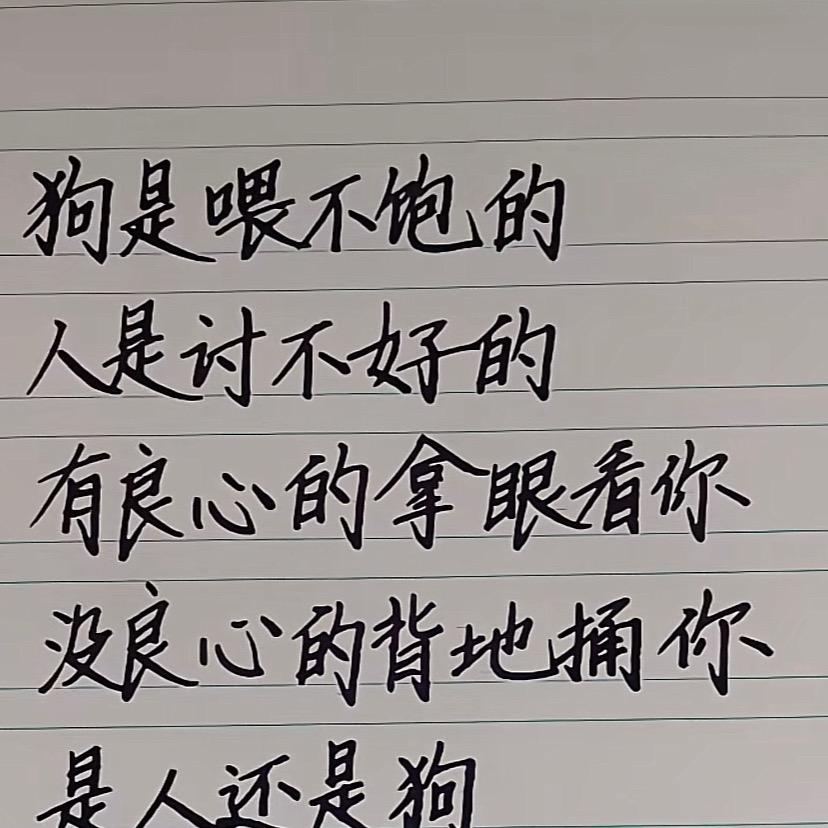 狗是喂不饱的
人是讨不好的
有良心的拿眼看你
没良心的背地捅你
是人还是狗